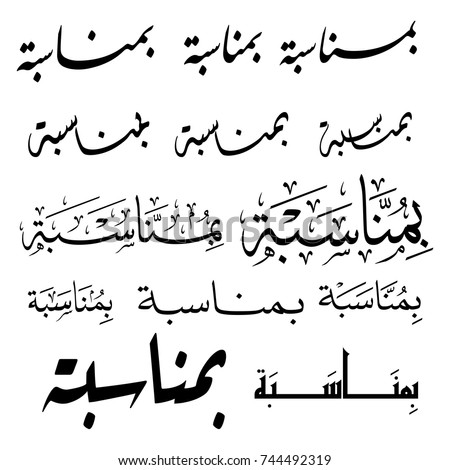 بمناسبة بمناسبة بمناسبة
بمناسبة بمناسبة بمناسبة
بِمُنَّاسَبَة بِمُنَّاسَبَة
بِمُنَّاسَبَة بمناسبة بِمُنَاسَبَة
بمناسبة بِمنَاسَبَة
shutterstock
www.shutterstock.com · 744492319